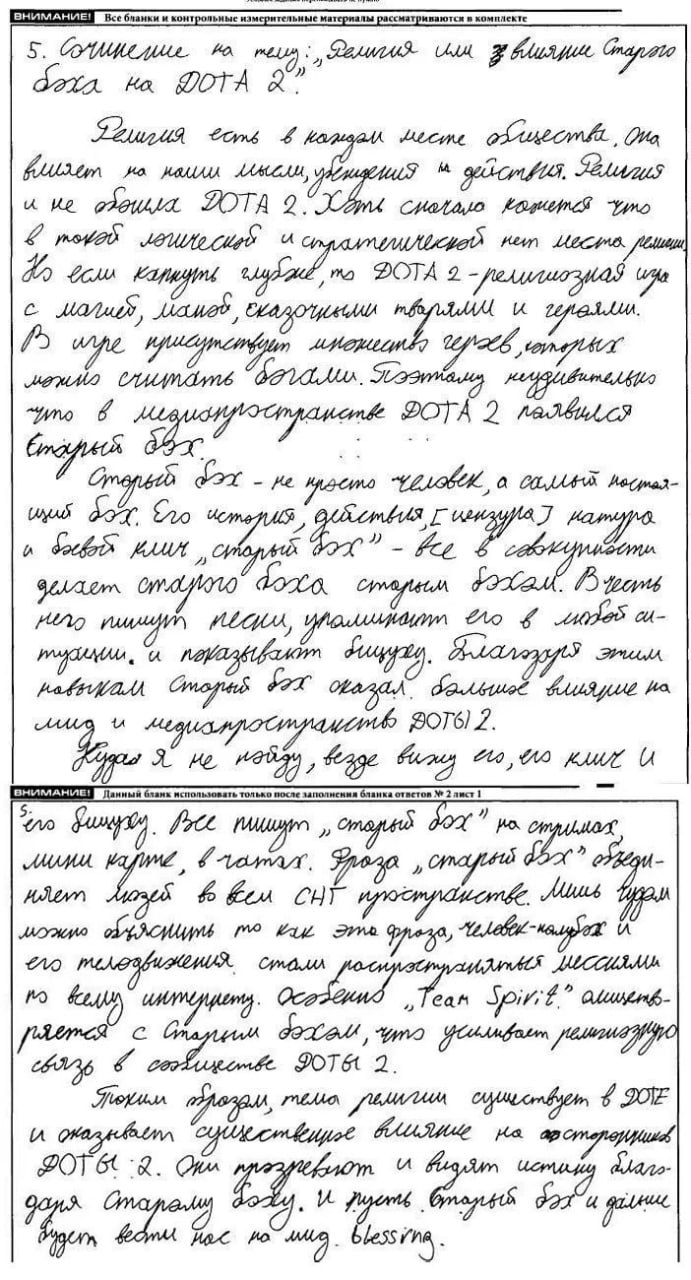 ВНИМАНИЕ! Все бланки и контрольные измерительные материалы рассматриваются в комплекте
5. Сочинение на тему: „Религия или влияние Старого
бэха на ДОТА 2."
Религия есть в каждом месте общества. Она
влияет на наши мысли, убеждения и действия. Религия
и не обошла ДОТА 2. Хоть сначала кажется что
в такой логической и стратегической нет места религии.
Но если капнуть глубже, то ДОТА 2 - религиозная игра
с магией, маной, сказочными тварями и героями.
В игре присутствует множество героев, которых
можно считать богами. Поэтому неудивительно
что в медиапространстве ДОТА 2 появился
Старый бэх.
Старый бэх - не просто человек, а самый настоя-
щий бэх. Его история, действия, [цензура] натура
и боевой клич „старый бэх" - все в совокупности
делает старого бэха старым бэхом. В честь
него пишут песни, упоминают его в любой си-
туации. и показывают бицуху. Благодаря этим
навыкам Старый бэх оказал большое влияние на
мид и медиапространство ДОТЫ 2.
Куда я не пойду, везде вижу его, его клич и
ВНИМАНИЕ! Данный бланк использовать только после заполнения бланка ответов № 2 лист 1
5.
его бицуху. Все пишут „старый бэх" на стримах,
мини карте, в чатах. Фраза „старый бэх" объеди-
няет людей во всем СНГ пространстве. Лишь чудом
можно объяснить то как эта фраза, человек-полубэх и
его телодвижения стали распространяться мессиями
по всему интернету. Особенно „Team Spirit" олицетво-
ряется с Старым бэхом, что усиливает религиозную
связь в сообществе ДОТЫ 2.
Таким образом, тема религии существует в ДОТЕ
и оказывает существенное влияние на сторонников
ДОТЫ 2. Они прозревают и видят истину благо-
даря Старому бэху. И пусть Старый бэх и дальше
будет вести нас на мид. blessing.